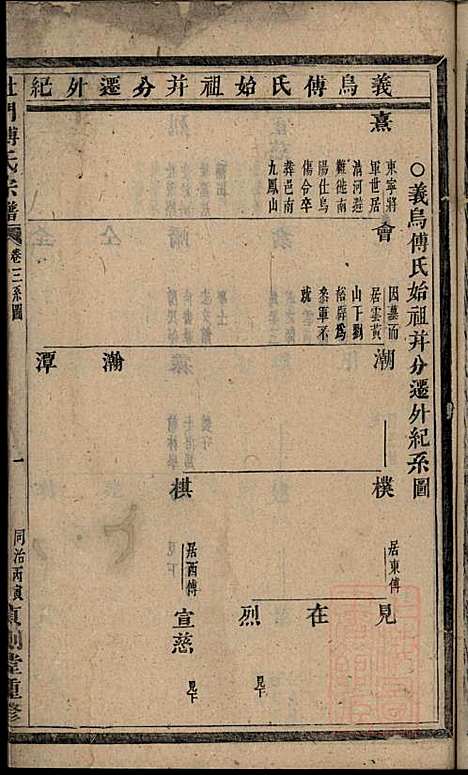 義烏傅氏始祖并分遷外紀
○義烏傅氏始祖并分遷外紀系圖
熹
東寧將
軍世居
清河避
難徙南
陽仕烏
傷令卒
葬邑南
九鳳山
會
因墓而
居雲黃
山下劉
裕辟為
參軍不
就
潮
瀚
潭
樸
居東傅
棋
居西傅
見
在
烈
見下
宣慈
見下
杜門傅氏宗譜
卷三系圖
一
同治丙寅
貞則堂重修